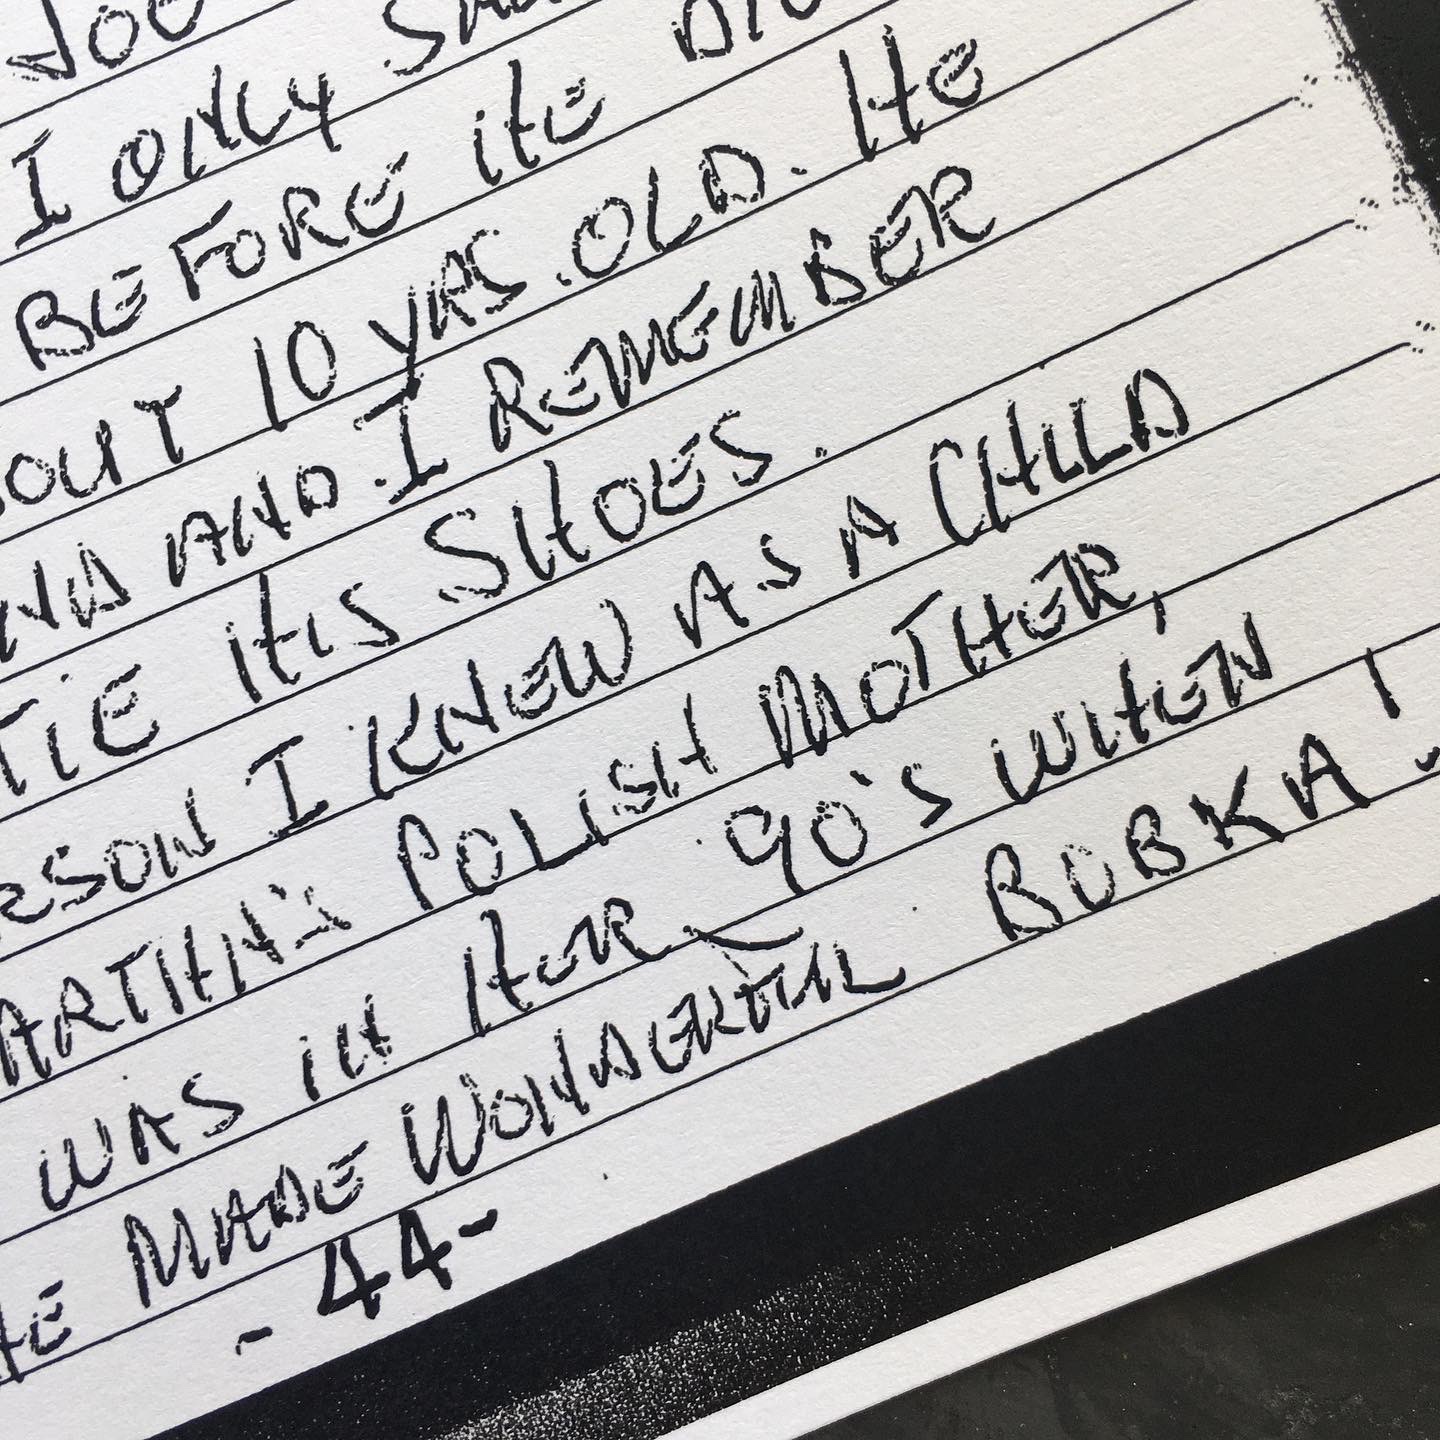 JOE
I ONLY
BEFORE HE
10 YRS. OLD. HE
AND I REMEMBER
TIE HIS SHOES.
I KNEW AS A CHILD
POLISH MOTHER,
WAS IN HER 90'S WHEN
MADE WONDERFUL BOBKA!
-44-